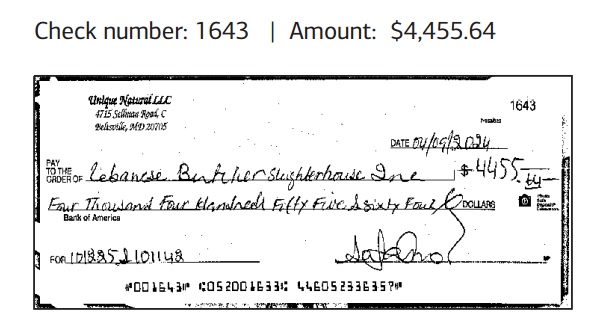 Check number: 1643 | Amount: $4,455.64
Unique Natural LLC
4715 Sellman Road, C
Beltsville, MD 20705
1643
DATE 04/09/2024
PAY TO THE ORDER OF Lebanese Butcher Slughterhouse Inc $4455.64
Four Thousand Four Hundred Fifty Five & sixty Four DOLLARS
Bank of America
FOR 101225 101142
⑈001643⑈ ⑆052001633⑆ 446052336357⑈